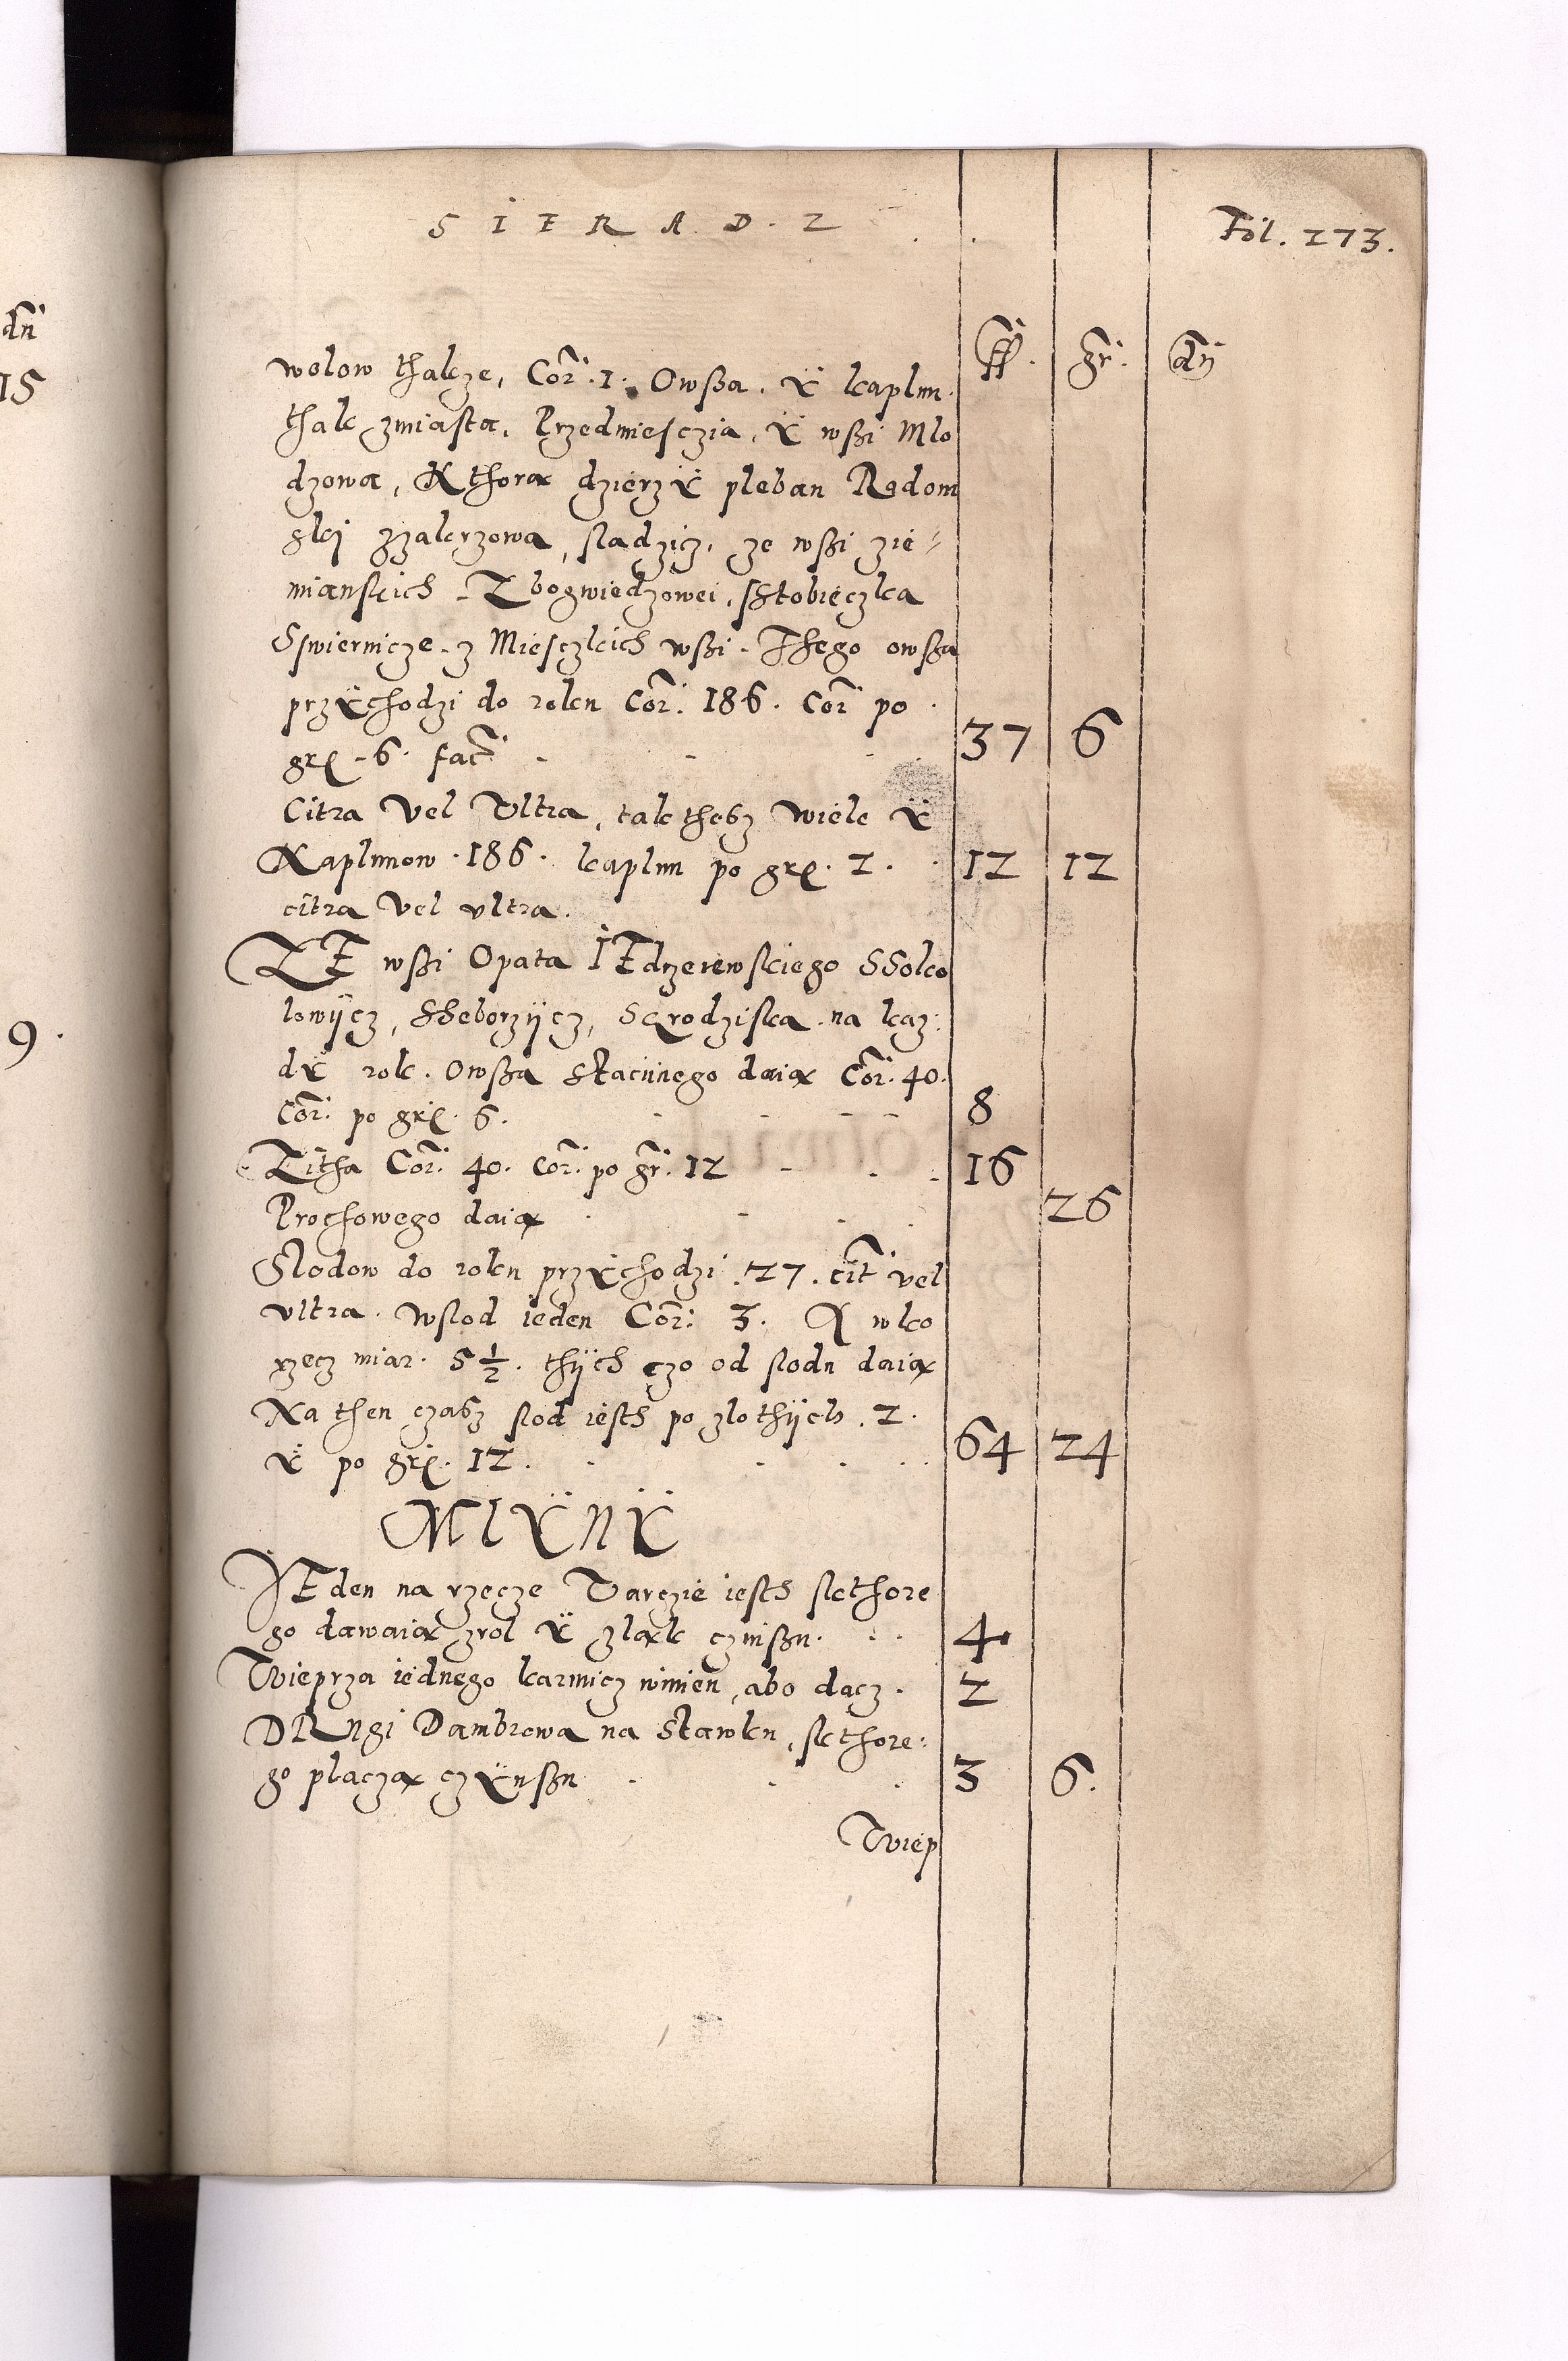 SIERADZ
Fol. 273.
ff. gr. dn
wolow thakze, Cor. 1. Owßa. ÿ kaplun.
thak zmiasta, Przedmiesczia, ÿ wßi Mlo
dzowa, Kthora dzierzÿ pleban Radom
ski zzakrzowa, sladzicz, ze wßi zie-
mianskich. Zbogwiedzowei, sstobieczka
Swiernicze. z Miesczkich wßi. Thego owßa
przÿchodzi do roku Cor. 186. Cor po
gr. 6. fac. 37 6
Citra Vel Vltra, takthesz wiele ÿ
Kaplunow. 186. kaplun po gr. 2. 12 12
citra Vel vltra.
ZE wßi Opata IEdrzeiewskiego SSoko
lowÿcz, ssborzÿcz, Sgrodziska. na kaz
dÿ rok. Owßa stacinego daia Cor. 40.
Cor. po gr. 6. 8
Zitha Cor. 40. Cor. po gr. 12 16
Prochowego daia 26
Slodow do roku przÿchodzi. 27. cit vel
vltra. wslod ieden Cor. 3. A wko
rzecz miar. 5 1/2. thÿch czo od slodu daia
Na then czasz slod iesth po zlothÿch. 2.
ÿ po gr. 12. 64 24
MlÿNÿ
IEden na rzecze Varczie iesth skthore
go dawaia zrol ÿ zlak czinßu. 4
Wieprza iednego karmicz winien, abo dacz. 2
DRUgi Dambrowa na stawku, skthore-
go placza czÿnßu 3 6.
Wiep
dn
15
9.